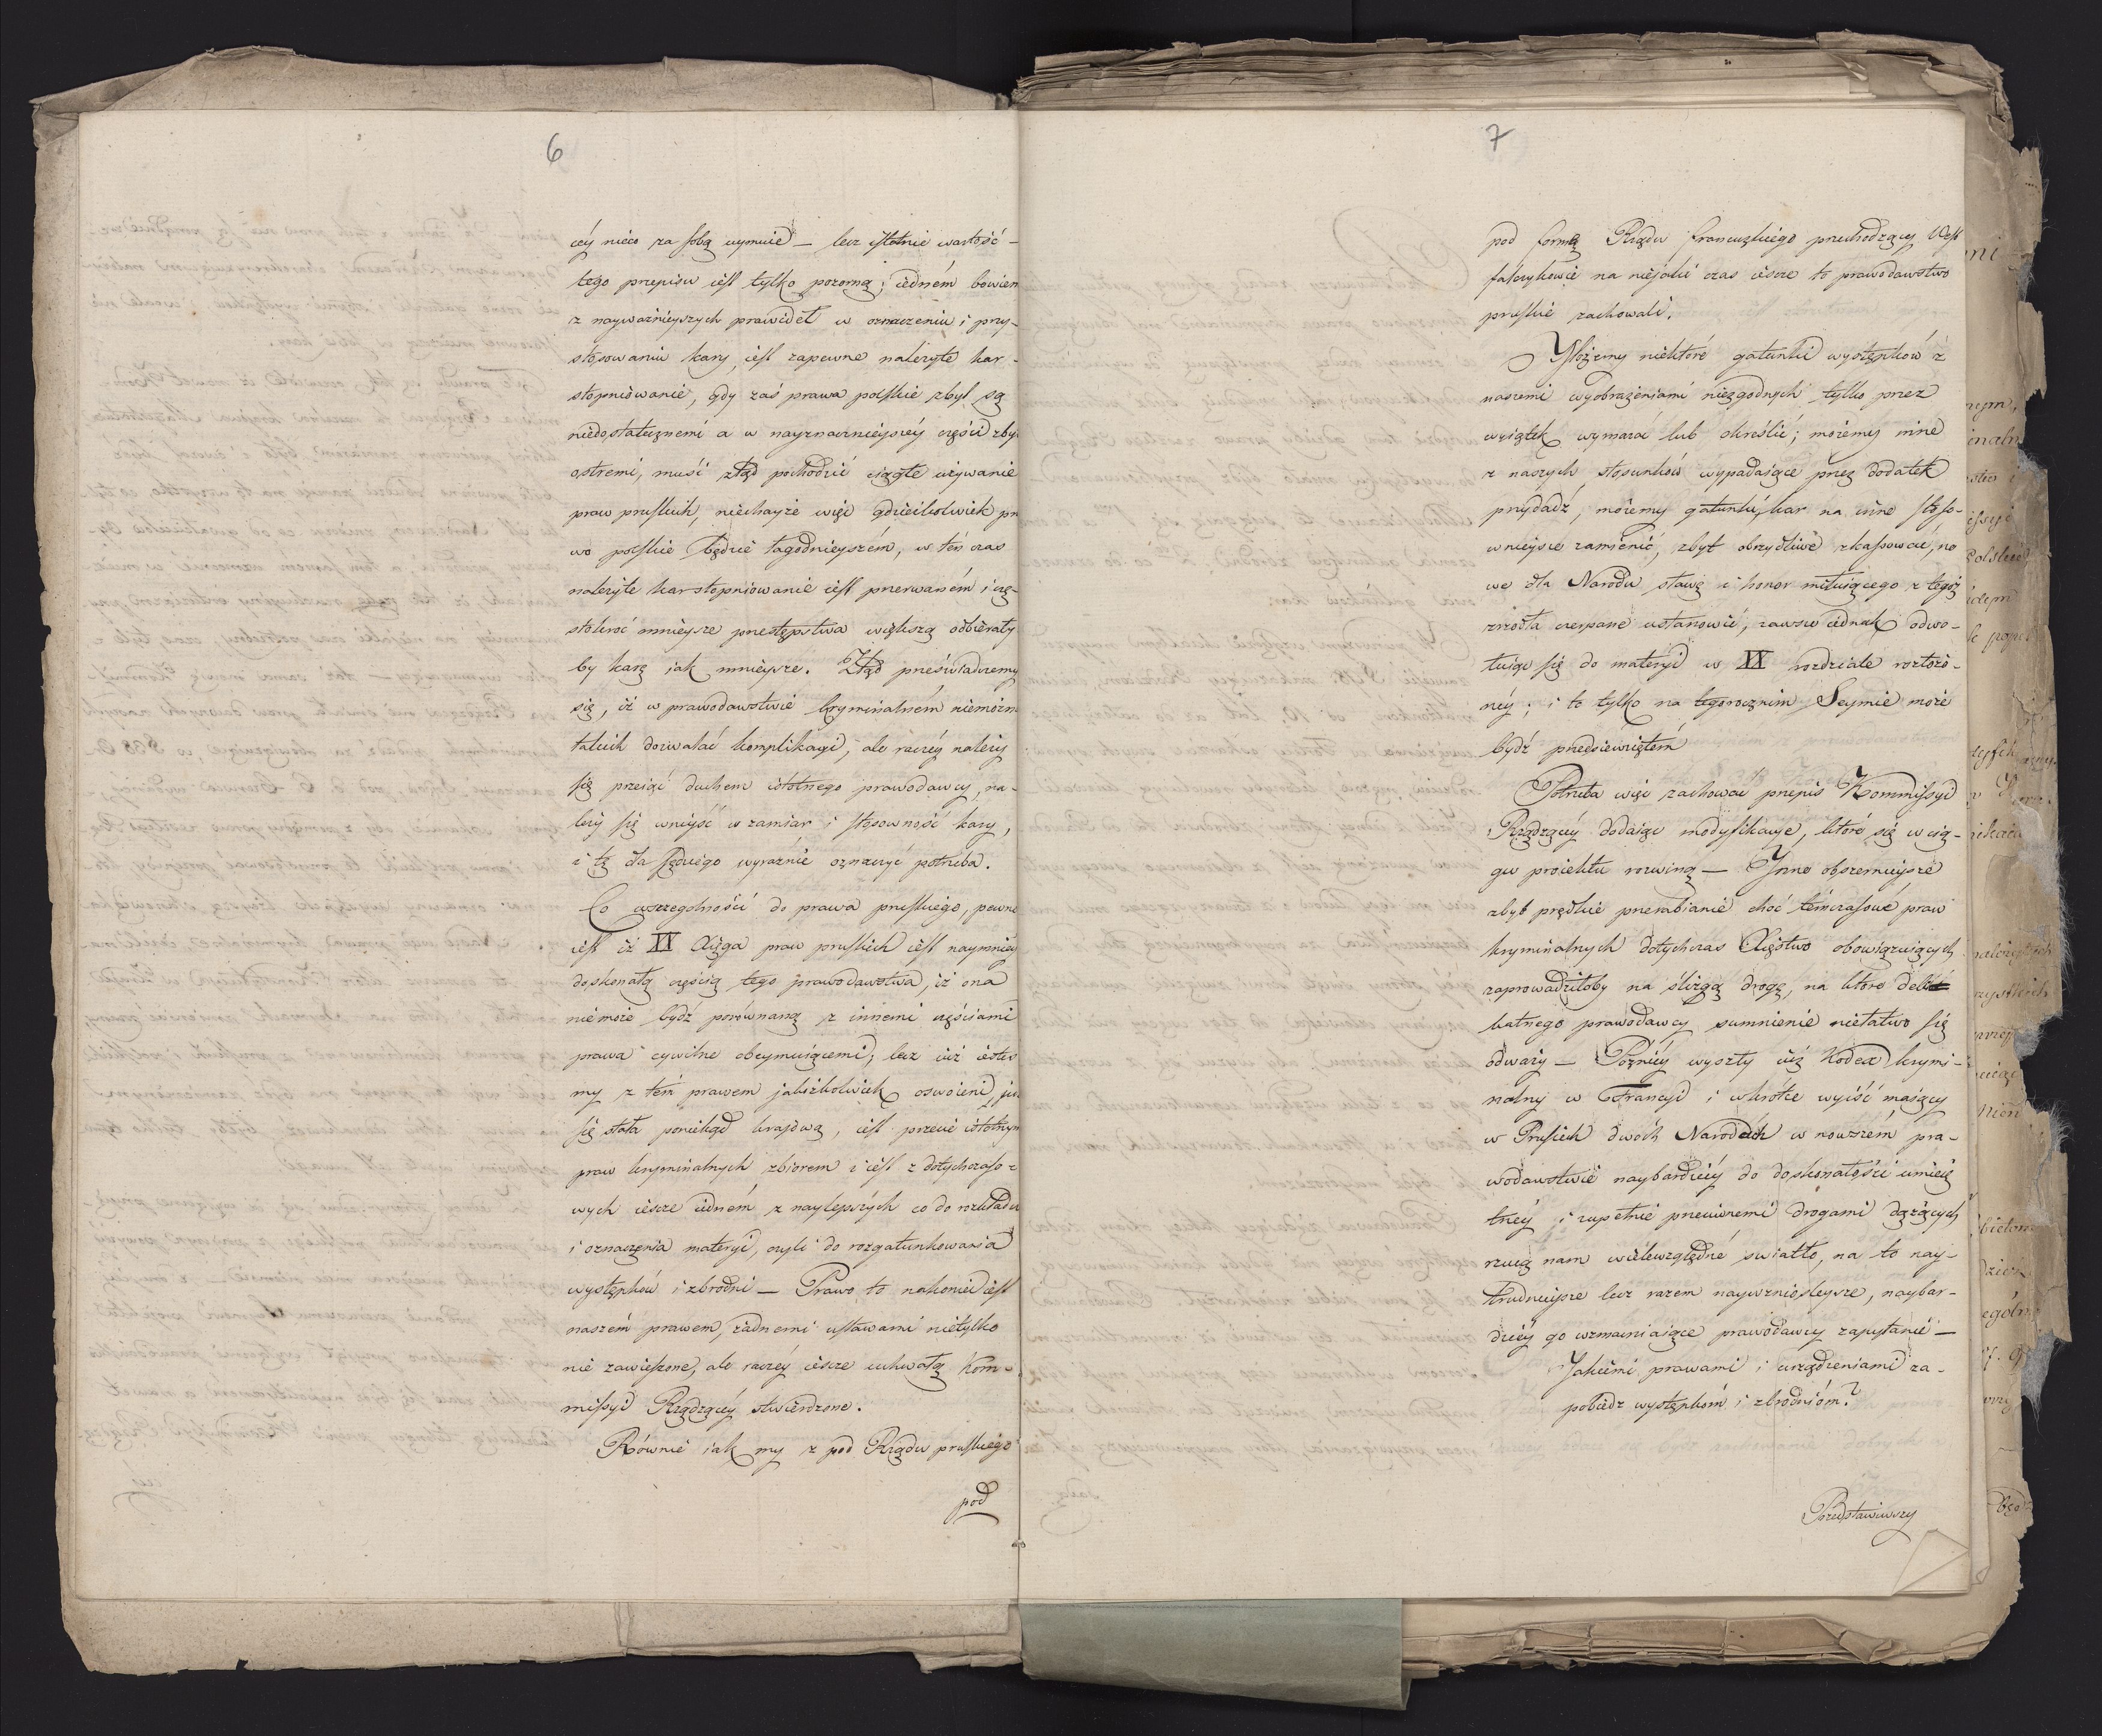 6
céy nieco za sobą uymuie — lecz istotnie wartość
tego przepisu iest tylko pozorną; iedném bowiem
z nayważnieyszych prawideł w oznaczeniu i przy-
stosowaniu kary, iest zapewne należyte kar
stopniowanie, gdy zaś prawa polskie zbyt są
niedostatecznemi a w nayznacznieyszéy części zby
ostremi, musi ztąd pochodzić ciągłe używanie
praw pruskich, niechayże więc gdzieikolwiek pra
wo polskie będzie łagodnieyszém, w ten czas
należyte kar stopniowanie iest przerwaném i czę-
stokroć mnieysze przestępstwa większą odbierały
by karę iak mnieysze. Ztąd przeświadczemy
się, iż w prawodawstwie kryminalném niemożna
takich dozwalać komplikacyi, ale raczéy należy
się przeiąć duchem istotnego prawodawcy, na-
leży się wniyść w zamiar i stosowność kary,
i tę dla sędziego wyraźnie oznaczyć potrzeba.
Co wszczegolności do prawa pruskiego, pewne
iest iż XX Xięga praw pruskich iest naymniey
doskonałą częścią tego prawodawstwa, iż ona
niemoże bydź porównaną z innemi częściami
prawa cywilne obeymuiącemi; lecz iuż ieste
my z tem prawem jakieżkolwiek oswoieni, już
się stała poniekąd kraiową, iest przecie istotnym
praw kryminalnych zbiorem i iest z dotychczaso-
wych ieszcze iedném z naylepszych co do rozkładu
i oznaczenia materyi, czyli do rozgatunkowania
występków i zbrodni — Prawo to nakoniec iest
naszém prawem, żadnemi ustawami nietylko
nie zawieszone, ale raczéy ieszcze uchwałą Kom-
missyi Rządzącéy stwierdzone.
Równie iak my z pod Rządu pruskiego
pod
7
pod formę Rządu francuzkiego przechodzący West
falczykowie na niejaki czas ieszcze to prawodawstwo
pruskie zachowali.
Możemy niektóré gatunki występków z
naszemi wyobrażeniami niezgodnych tylko przez
wyiątek wymazać lub określić; możemy inne
z naszych stosunków wypadaiące przez dodatek
przydadź, możemy gatunki kar na inne stoso-
wnieysze zamienić, zbyt obrzydliwe skassować, no
we dla Narodu sławę i honor miłuiącego z tegoż
zrzodła czerpane ustanowić, zawsze iednak odwo-
łuiąc się do materyi w XX rozdziale rozłożo-
néy; i to tylko na tegorocznim Seymie może
bydź przedsiewziętém
Potrzeba więc zachować przepis Kommissyi
Rządzącéy dodaiąc modyfikacye, które się w cią-
gu proiektu rozwiną — Inne obszernieysze
zbyt prędkie przerabianie choć témczasowe praw
kryminalnych dotychczas Xięstwo obowiązuiących
zaprowadziłoby na ślizgą drogę, na które deli
katnego prawodawcy sumnienie niełatwo się
odważy — Pózniéy wyszły iuż Kodex krymi-
nalny w Francyi i wkrótce wyiść maiący
w Prusiech dwóch Narodach w nowszém pra-
wodawstwie naybardziéy do doskonałości umieię
tnéy i zupełnie przeciwnemi drogami dążących
rzucą nam wielewzględné swiatło, na to nay-
trudnieysze lecz razem naywznioślejsze, naybar-
dziéy go wzmacniaiące prawodawcy zapytanie —
Jakiemi prawami i urządzeniami za-
pobiedz występkom i zbrodniom?
Przedstawiwszy